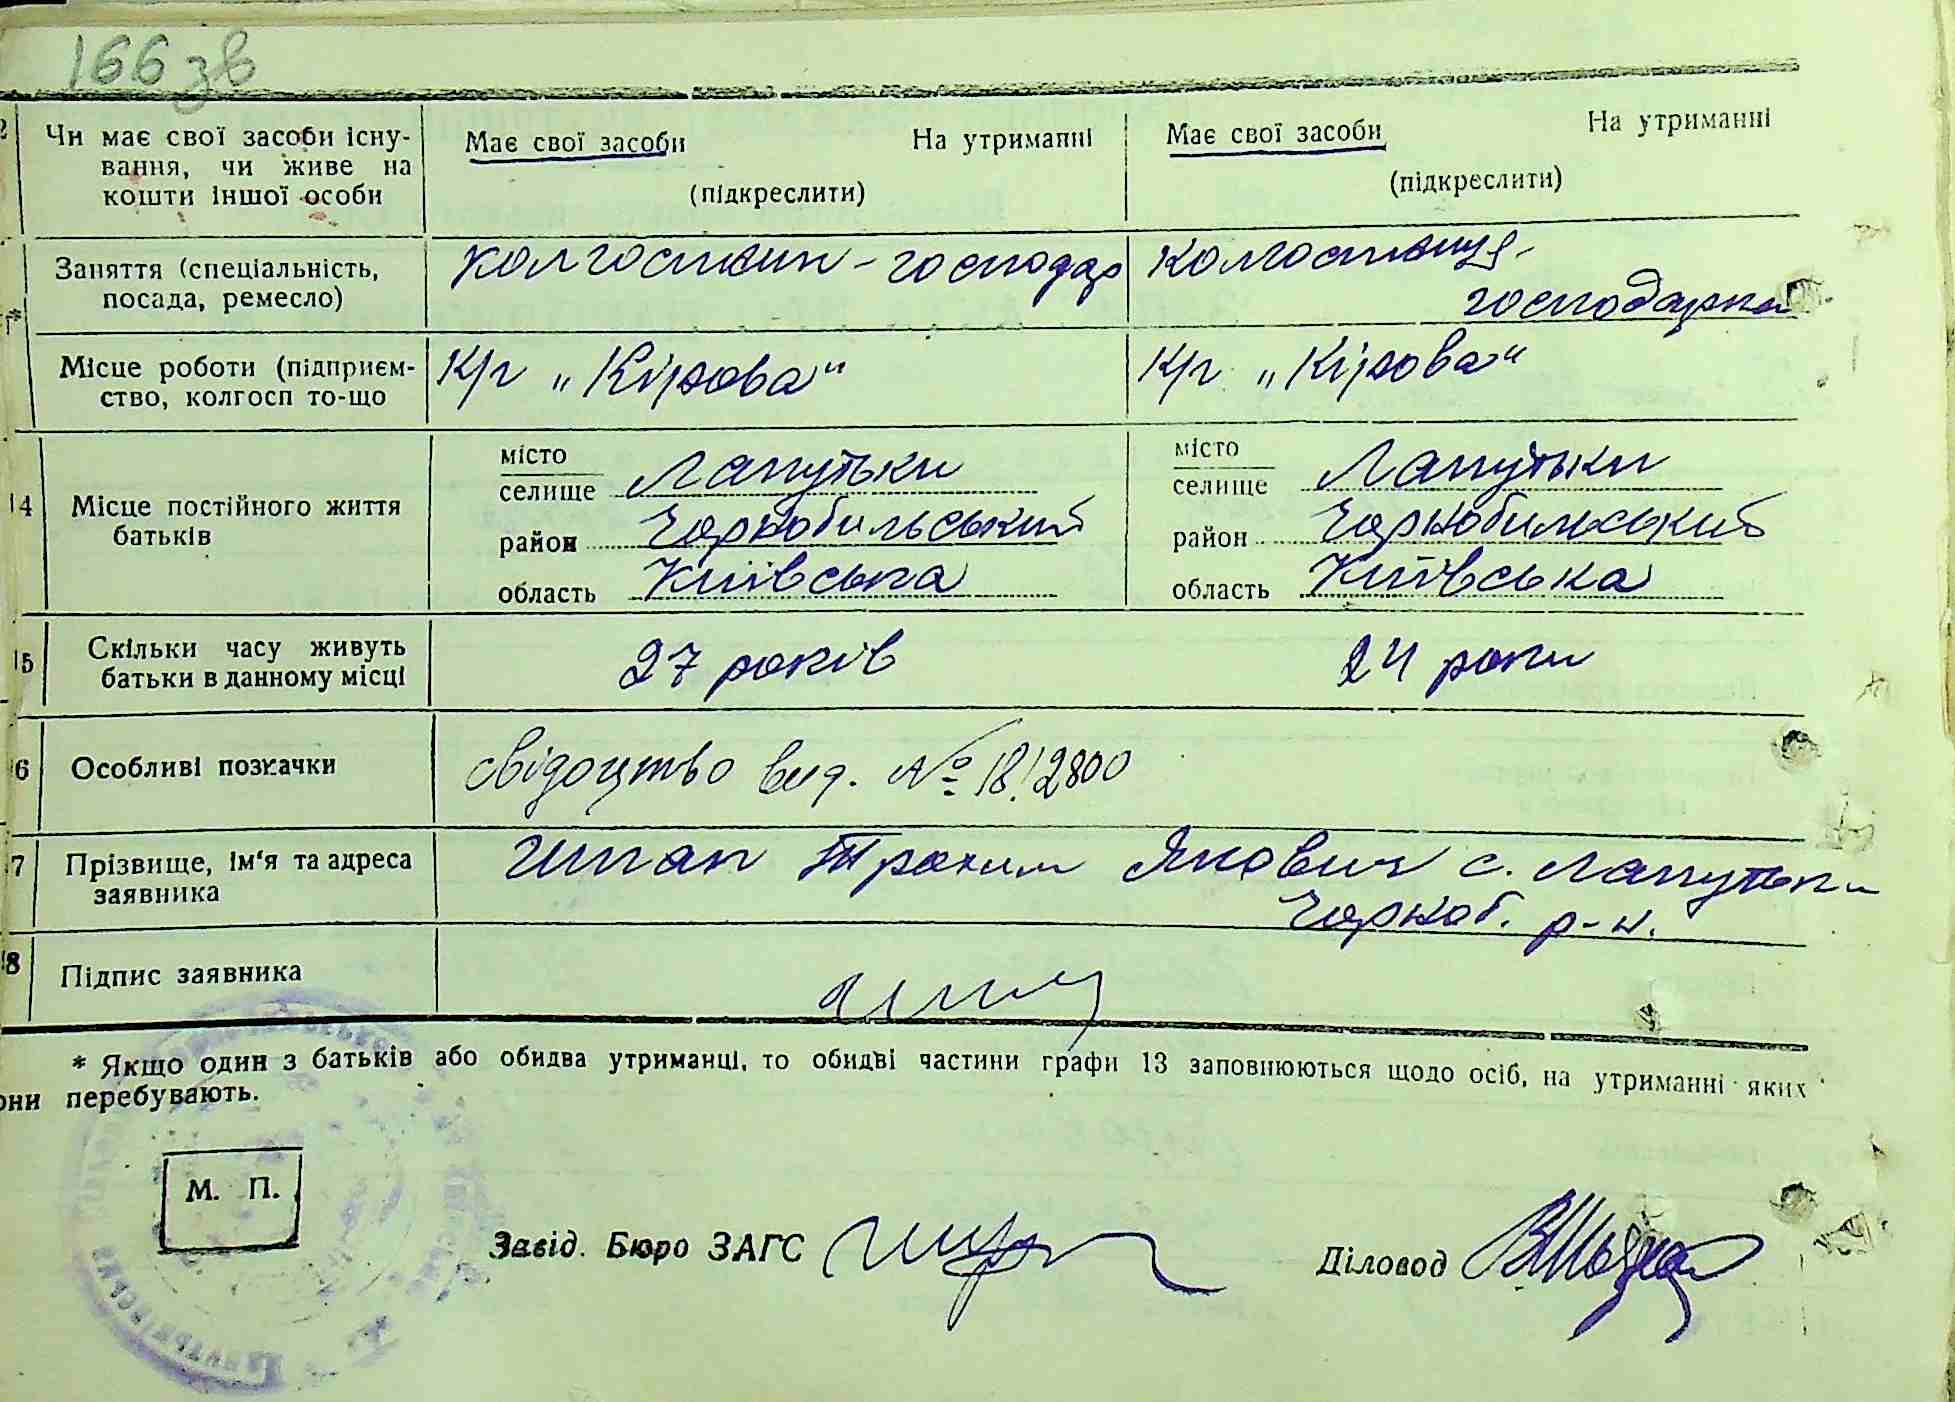 166 зв
Чи має свої засоби існу-
вання, чи живе на
кошти іншої особи
Має свої засоби На утриманні
(підкреслити)
Має свої засоби На утриманні
(підкреслити)
Заняття (спеціальність,
посада, ремесло)
колгоспник - господар
колгоспниця -
господарка
Місце роботи (підприєм-
ство, колгосп то-що
К/г „Кірова"
К/г „Кірова"
14 Місце постійного життя
батьків
місто
селище Лапутьки
район Чорнобильський
область Київська
місто
селище Лапутьки
район Чорнобильський
область Київська
15 Скільки часу живуть
батьки в данному місці
27 років
24 роки
6 Особливі позначки
свідоцтво вид. № 18/2800
7 Прізвище, ім'я та адреса
заявника
Шпак Трохим Якович с. Лапутьки
Чорноб. р-н.
8 Підпис заявника
* Якщо один з батьків або обидва утриманці, то обидві частини графи 13 заповнюються щодо осіб, на утриманні яких
они перебувають.
М. П.
Завід. Бюро ЗАГС
Діловод